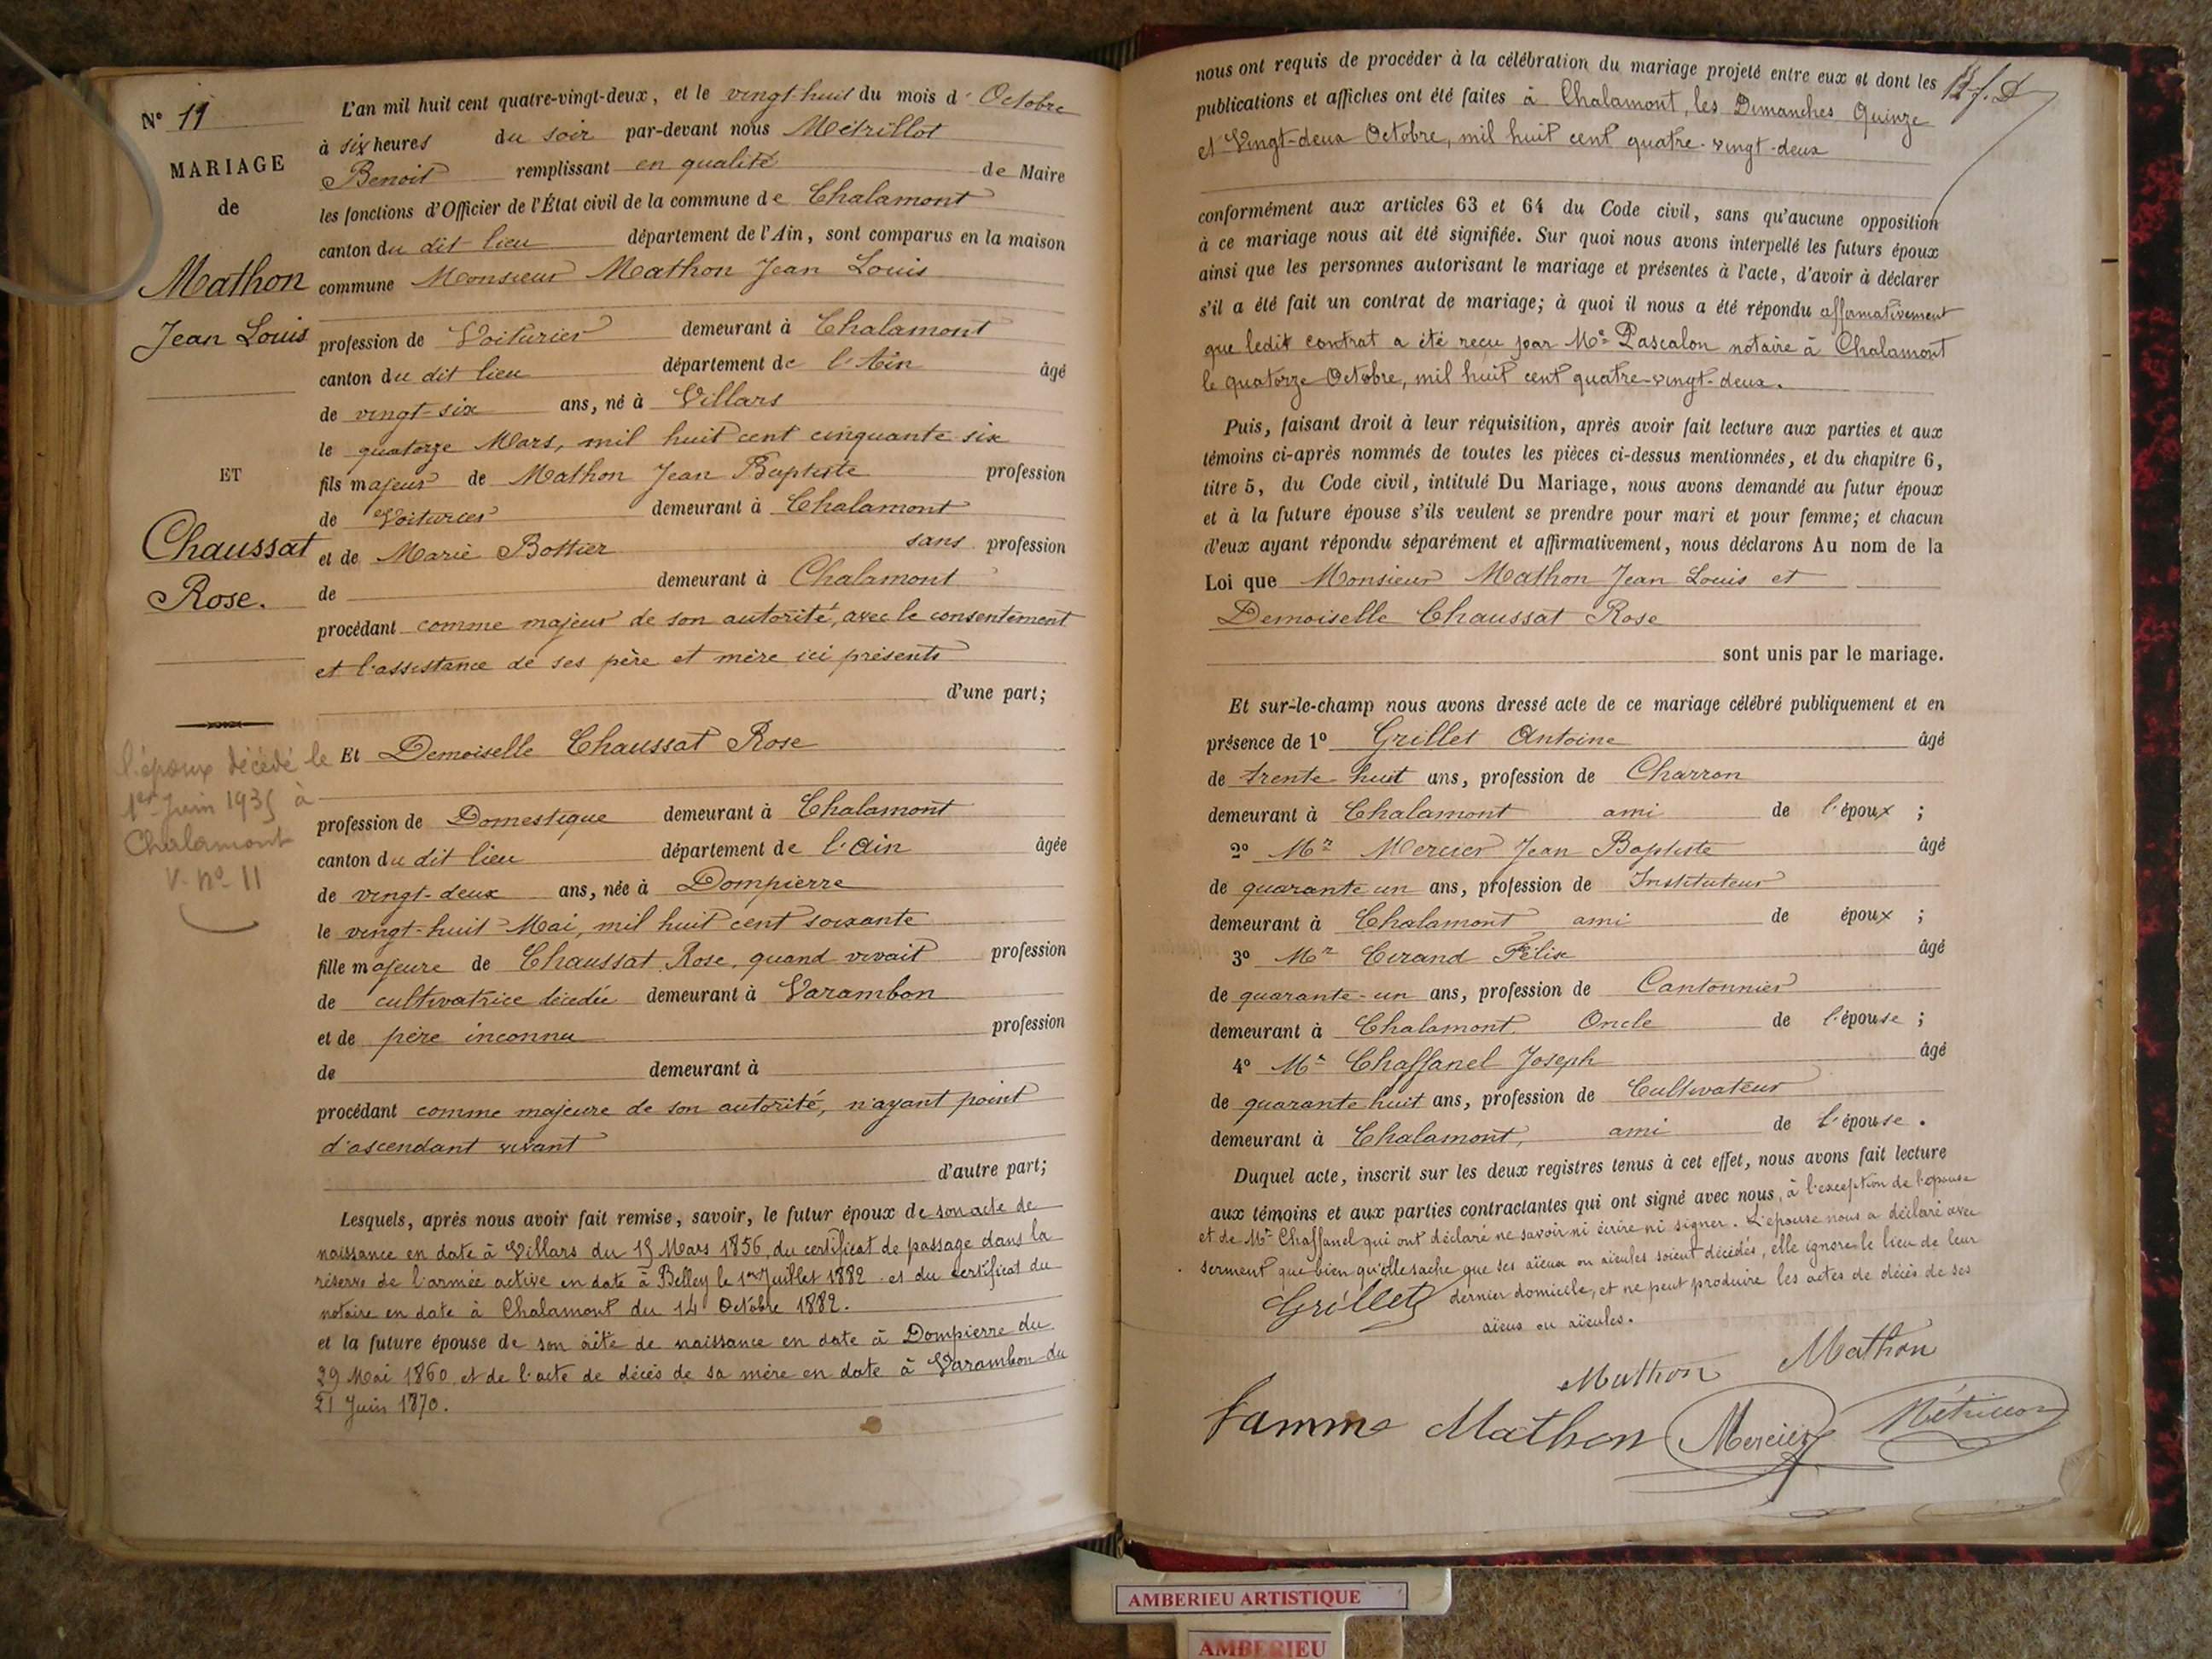 N° 11
MARIAGE
de
Mathon
Jean Louis
ET
Chaussat
Rose.
l'époux décédé le
1er Juin 1935 à
Chalamont
V. n° 11
L'an mil huit cent quatre-vingt-deux, et le vingt-huit du mois d'Octobre
à six heures du soir par-devant nous Métrillot
Benoit remplissant en qualité de Maire
les fonctions d'Officier de l'État civil de la commune de Chalamont
canton du dit lieu département de l'Ain, sont comparus en la maison
commune Monsieur Mathon Jean Louis
profession de Voiturier demeurant à Chalamont
canton du dit lieu département de l'Ain âgé
de vingt-six ans, né à Villars
le quatorze Mars, mil huit cent cinquante six
fils majeur de Mathon Jean Baptiste profession
de Voiturier demeurant à Chalamont
et de Marie Bottier sans profession
de demeurant à Chalamont
procédant comme majeur de son autorité, avec le consentement
et l'assistance de ses père et mère ici présents
d'une part;
Et Demoiselle Chaussat Rose
profession de Domestique demeurant à Chalamont
canton du dit lieu département de l'Ain âgée
de vingt-deux ans, née à Dompierre
le vingt-huit Mai, mil huit cent soixante
fille majeure de Chaussat Rose, quand vivait profession
de cultivatrice décédée demeurant à Varambon
et de père inconnu profession
de demeurant à
procédant comme majeure de son autorité, n'ayant point
d'ascendant vivant
d'autre part;
Lesquels, après nous avoir fait remise, savoir, le futur époux de son acte de
naissance en date à Villars du 15 Mars 1856, du certificat de passage dans la
réserve de l'armée active en date à Belley le 1er Juillet 1882 et du certificat du
notaire en date à Chalamont du 14 Octobre 1882.
et la future épouse de son acte de naissance en date à Dompierre du
29 Mai 1860 et de l'acte de décès de sa mère en date à Varambon du
21 Juin 1870.
nous ont requis de procéder à la célébration du mariage projeté entre eux et dont les
publications et affiches ont été faites à Chalamont, les Dimanches Quinze
et Vingt-deux Octobre, mil huit cent quatre-vingt-deux
conformément aux articles 63 et 64 du Code civil, sans qu'aucune opposition
à ce mariage nous ait été signifiée. Sur quoi nous avons interpellé les futurs époux
ainsi que les personnes autorisant le mariage et présentes à l'acte, d'avoir à déclarer
s'il a été fait un contrat de mariage; à quoi il nous a été répondu affirmativement
que ledit contrat a été reçu par Me Pascalon notaire à Chalamont
le quatorze Octobre, mil huit cent quatre-vingt-deux.
Puis, faisant droit à leur réquisition, après avoir fait lecture aux parties et aux
témoins ci-après nommés de toutes les pièces ci-dessus mentionnées, et du chapitre 6,
titre 5, du Code civil, intitulé Du Mariage, nous avons demandé au futur époux
et à la future épouse s'ils veulent se prendre pour mari et pour femme; et chacun
d'eux ayant répondu séparément et affirmativement, nous déclarons Au nom de la
Loi que Monsieur Mathon Jean Louis et
Demoiselle Chaussat Rose
sont unis par le mariage.
Et sur-le-champ nous avons dressé acte de ce mariage célébré publiquement et en
présence de 1° Grillet Antoine âgé
de trente huit ans, profession de Charron
demeurant à Chalamont ami de l'époux ;
2° Mr Mercier Jean Baptiste âgé
de quarante un ans, profession de Instituteur
demeurant à Chalamont ami de époux ;
3° Mr Cerand Félix âgé
de quarante-un ans, profession de Cantonnier
demeurant à Chalamont Oncle de l'épouse ;
4° Mr Chaffanel Joseph âgé
de quarante huit ans, profession de Cultivateur
demeurant à Chalamont, ami de l'épouse.
Duquel acte, inscrit sur les deux registres tenus à cet effet, nous avons fait lecture
aux témoins et aux parties contractantes qui ont signé avec nous, à l'exception de l'épouse
et de Mr Chaffanel qui ont déclaré ne savoir ni écrire ni signer. L'épouse nous a déclaré avec
serment que bien qu'elle sache que ses aïeux ou aïeules soient décédés, elle ignore le lieu de leur
dernier domicile, et ne peut produire les actes de décès de ses
aïeux ou aïeules.
Grillet
Mathon Mathon
famme Mathon Mercier Métrillot
AMBERIEU ARTISTIQUE
AMBERIEU